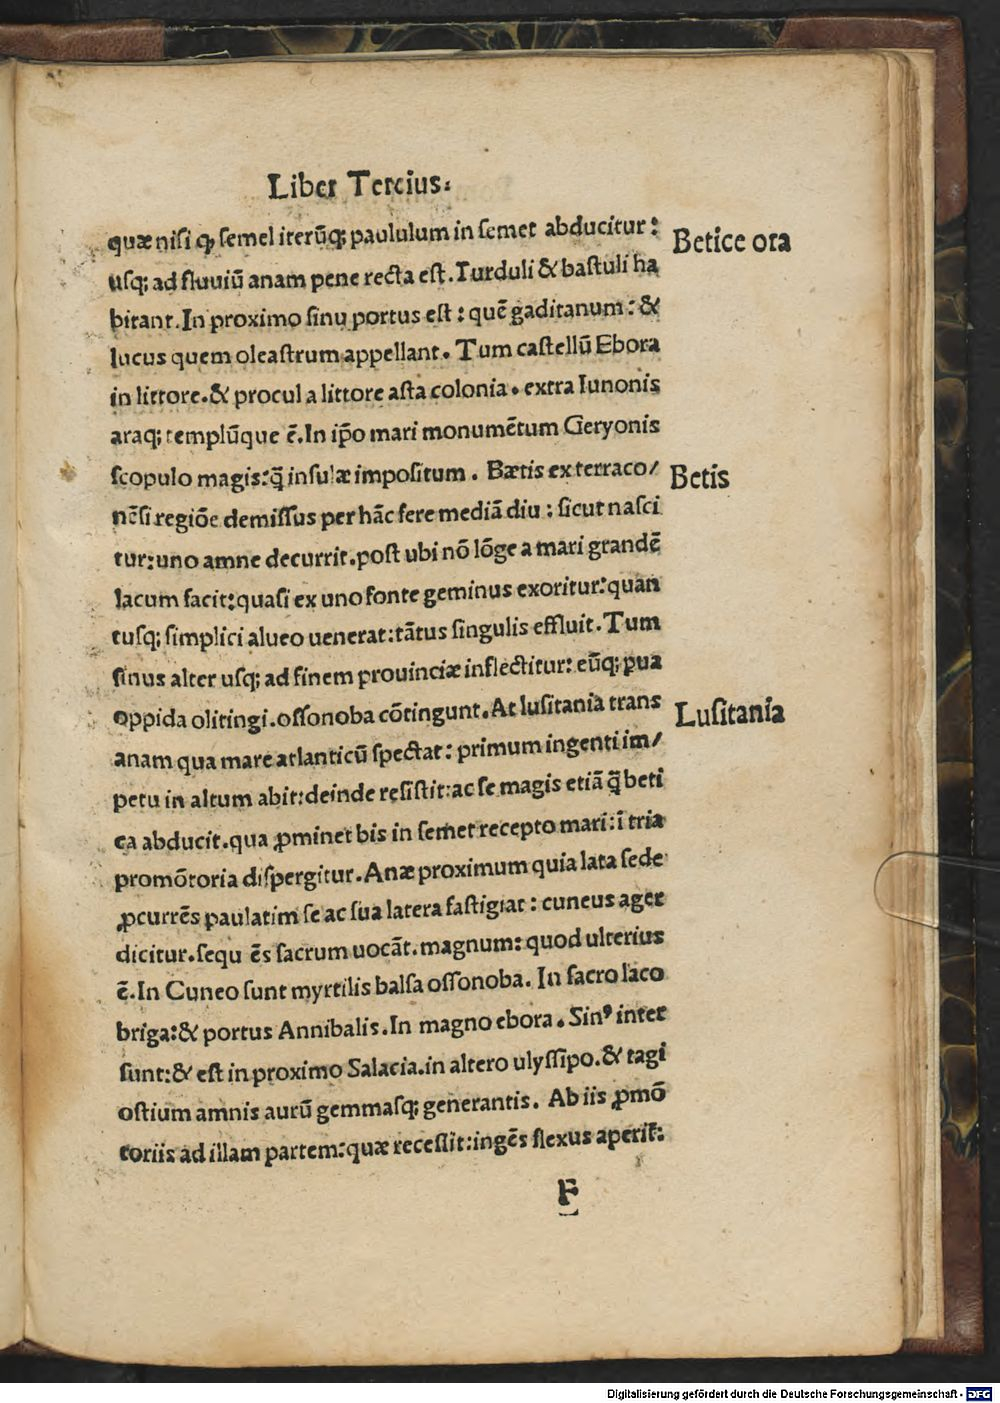 Liber Tercius:
quæ niſi ꝙ ſemel iterūq; paululum in ſemet abducitur:
Betice ora
uſq; ad fluuiū anam pene recta eſt. Turduli & baſtuli ha
bitant. In proximo ſinu portus eſt: quē gaditanum: &
lucus quem oleaſtrum appellant. Tum caſtellū Ebora
in littore. & procul a littore aſta colonia. extra Iunonis
araq; templūque ē. In ip̄o mari monumētum Geryonis
ſcopulo magis: q̄ inſulæ impoſitum. Bætis ex terraco/
Betis
nēſi regiōe demiſſus per hāc fere mediā diu: ſicut naſci
tur: uno amne decurrit. poſt ubi nō lōge a mari grandē
lacum facit: quaſi ex uno fonte geminus exoritur: quan
tuſq; ſimplici alueo uenerat: tātus ſingulis effluit. Tum
ſinus alter uſq; ad finem prouinciæ inflectitur: eūq; pua
oppida olitingi. oſſonoba cōtingunt. At luſitania trans
Luſitania
anam qua mare atlanticū ſpectat: primum ingenti im/
petu in altum abit: deinde reſiſtit: ac ſe magis etiā q̄ beti
ca abducit. qua ꝓminet bis in ſemet recepto mari: ī tria
promōtoria diſpergitur. Anæ proximum quia lata ſede
ꝓcurrēs paulatim ſe ac ſua latera faſtigiat: cuneus ager
dicitur. ſequ ēs ſacrum uocāt. magnum: quod ulterius
ē. In Cuneo ſunt myrtilis balſa oſſonoba. In ſacro laco
briga: & portus Annibalis. In magno ebora. Sinꝰ inter
ſunt: & eſt in proximo Salacia. in altero ulyſſipo. & tagi
oſtium amnis aurū gemmaſq; generantis. Ab iis ꝓmō
toriis ad illam partem: quæ receſſit: ingēs flexus aperit̄:
F
Digitalisierung gefördert durch die Deutsche Forschungsgemeinschaft - DFG